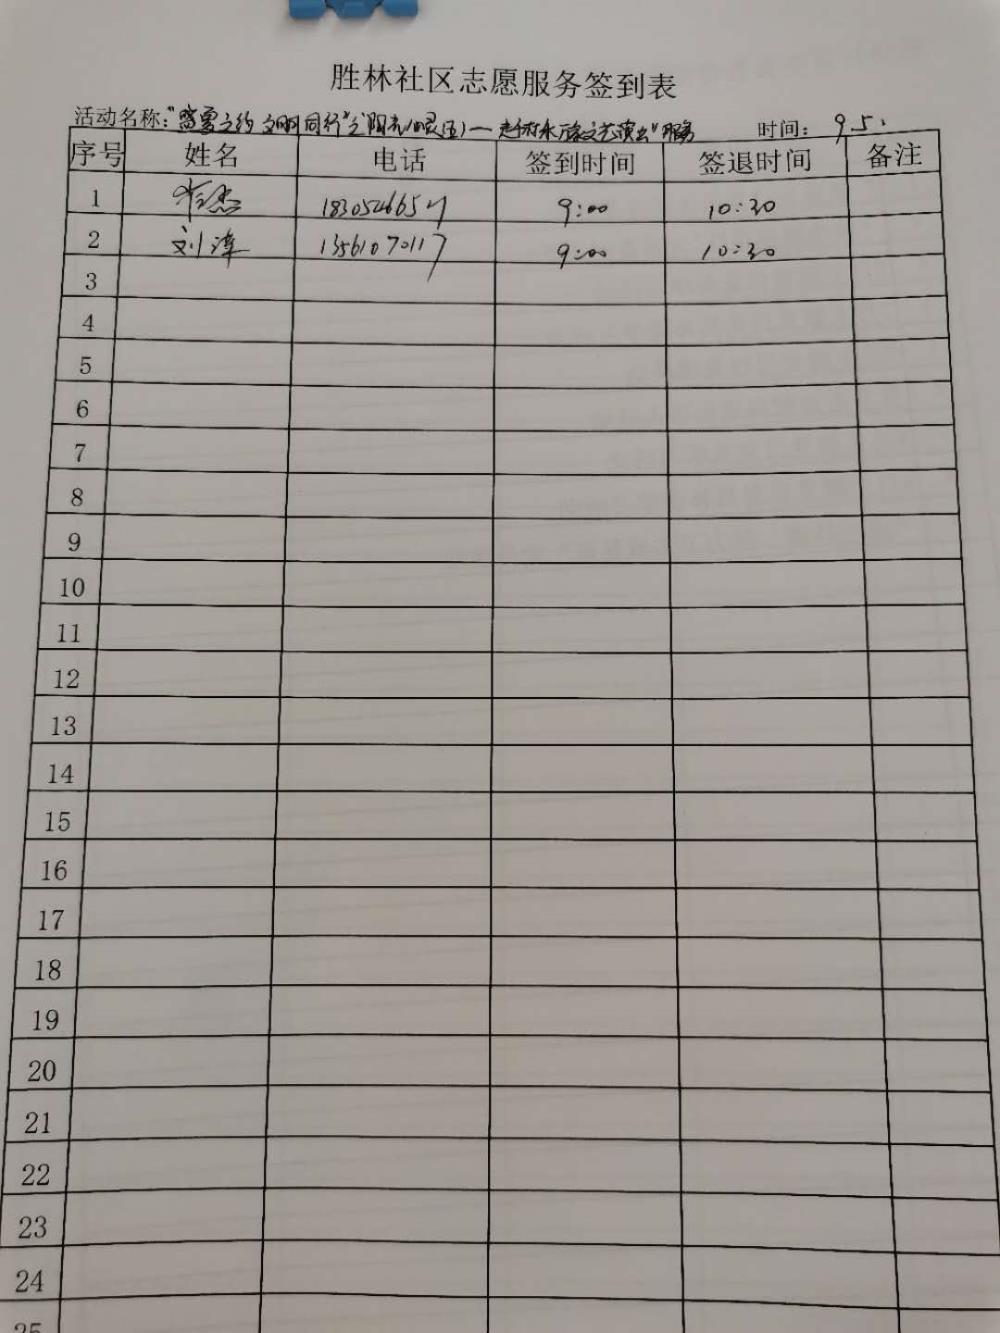 胜林社区志愿服务签到表
活动名称:"盛夏之约 文明同行"之"阳光 演出"服务 时间: 9.5.
序号 姓名 电话 签到时间 签退时间 备注
1 杰 9:00 10:30
2 刘 13561070117 9:00 10:30
3
4
5
6
7
8
9
10
11
12
13
14
15
16
17
18
19
20
21
22
23
24
25